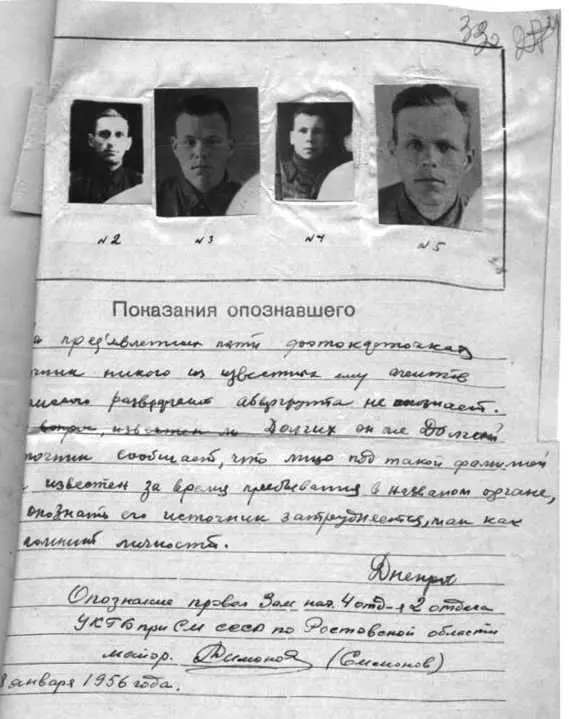 330
№2 №3 №4 №5
Показания опознавшего
предъявленных пяти фотокарточках
никого из известных ему агентов
абвергрупта не опознает.
известен ли Долгих он же Долгий
сообщает, что лицо под такой фамилией
известен за время пребывания в названом органе,
опознать его источник затрудняется, так как
личность.
Днепр
Опознание провел Зам нач. 4 отд-я 2 отдела
УКГБ при СМ СССР по Ростовской области
майор. (Симонов)
8 января 1956 года.